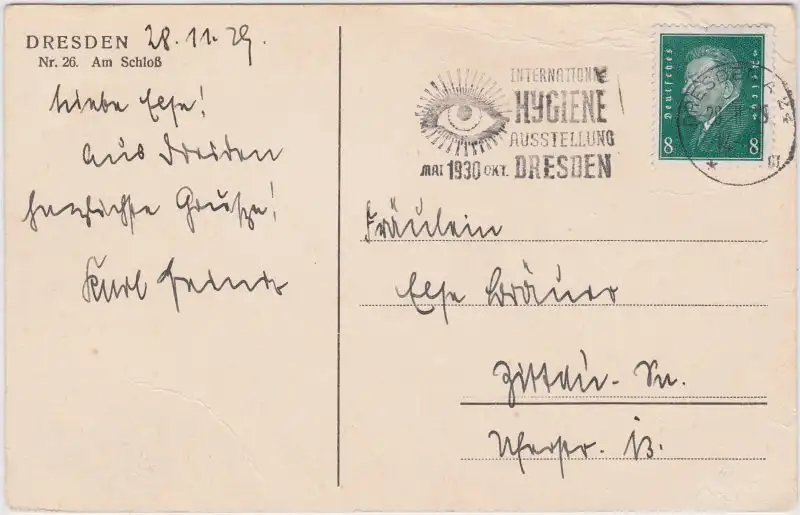 DRESDEN 28.11.29.
Nr. 26. Am Schloß
Liebe Else!
Aus Dresden
herzlichste Grüße!
Karl
INTERNATION
HYGIENE
AUSSTELLUNG
MAI 1930 OKT. DRESDEN
Deutsches Reich
8 8
DRESDEN A 24
Fräulein
Else Bräuer
Zittau - Sa.
Uferstr. 13.